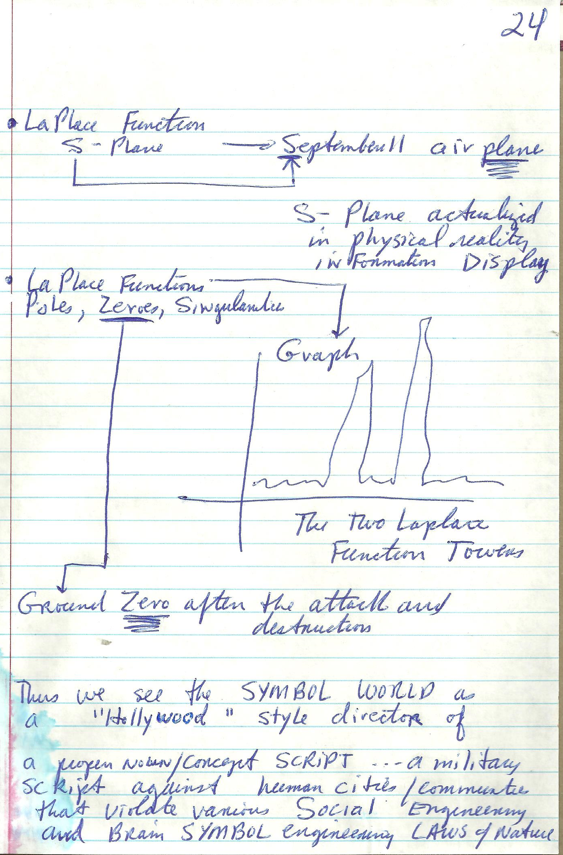 24
• LaPlace Function
S - Plane → September 11 air plane
S - Plane actualized
in physical reality
in Formation Display
• LaPlace Functions
Poles, Zeroes, Singularities
Graph
The Two Laplace
Function Towers
Ground Zero after the attack and
destruction
Thus we see the SYMBOL WORLD as
a "Hollywood" style director of
a proper NOUN/CONCEPT SCRIPT ... a military
script against human cities/communities
that violate various Social Engineering
and Brain SYMBOL engineering LAWS of Nature